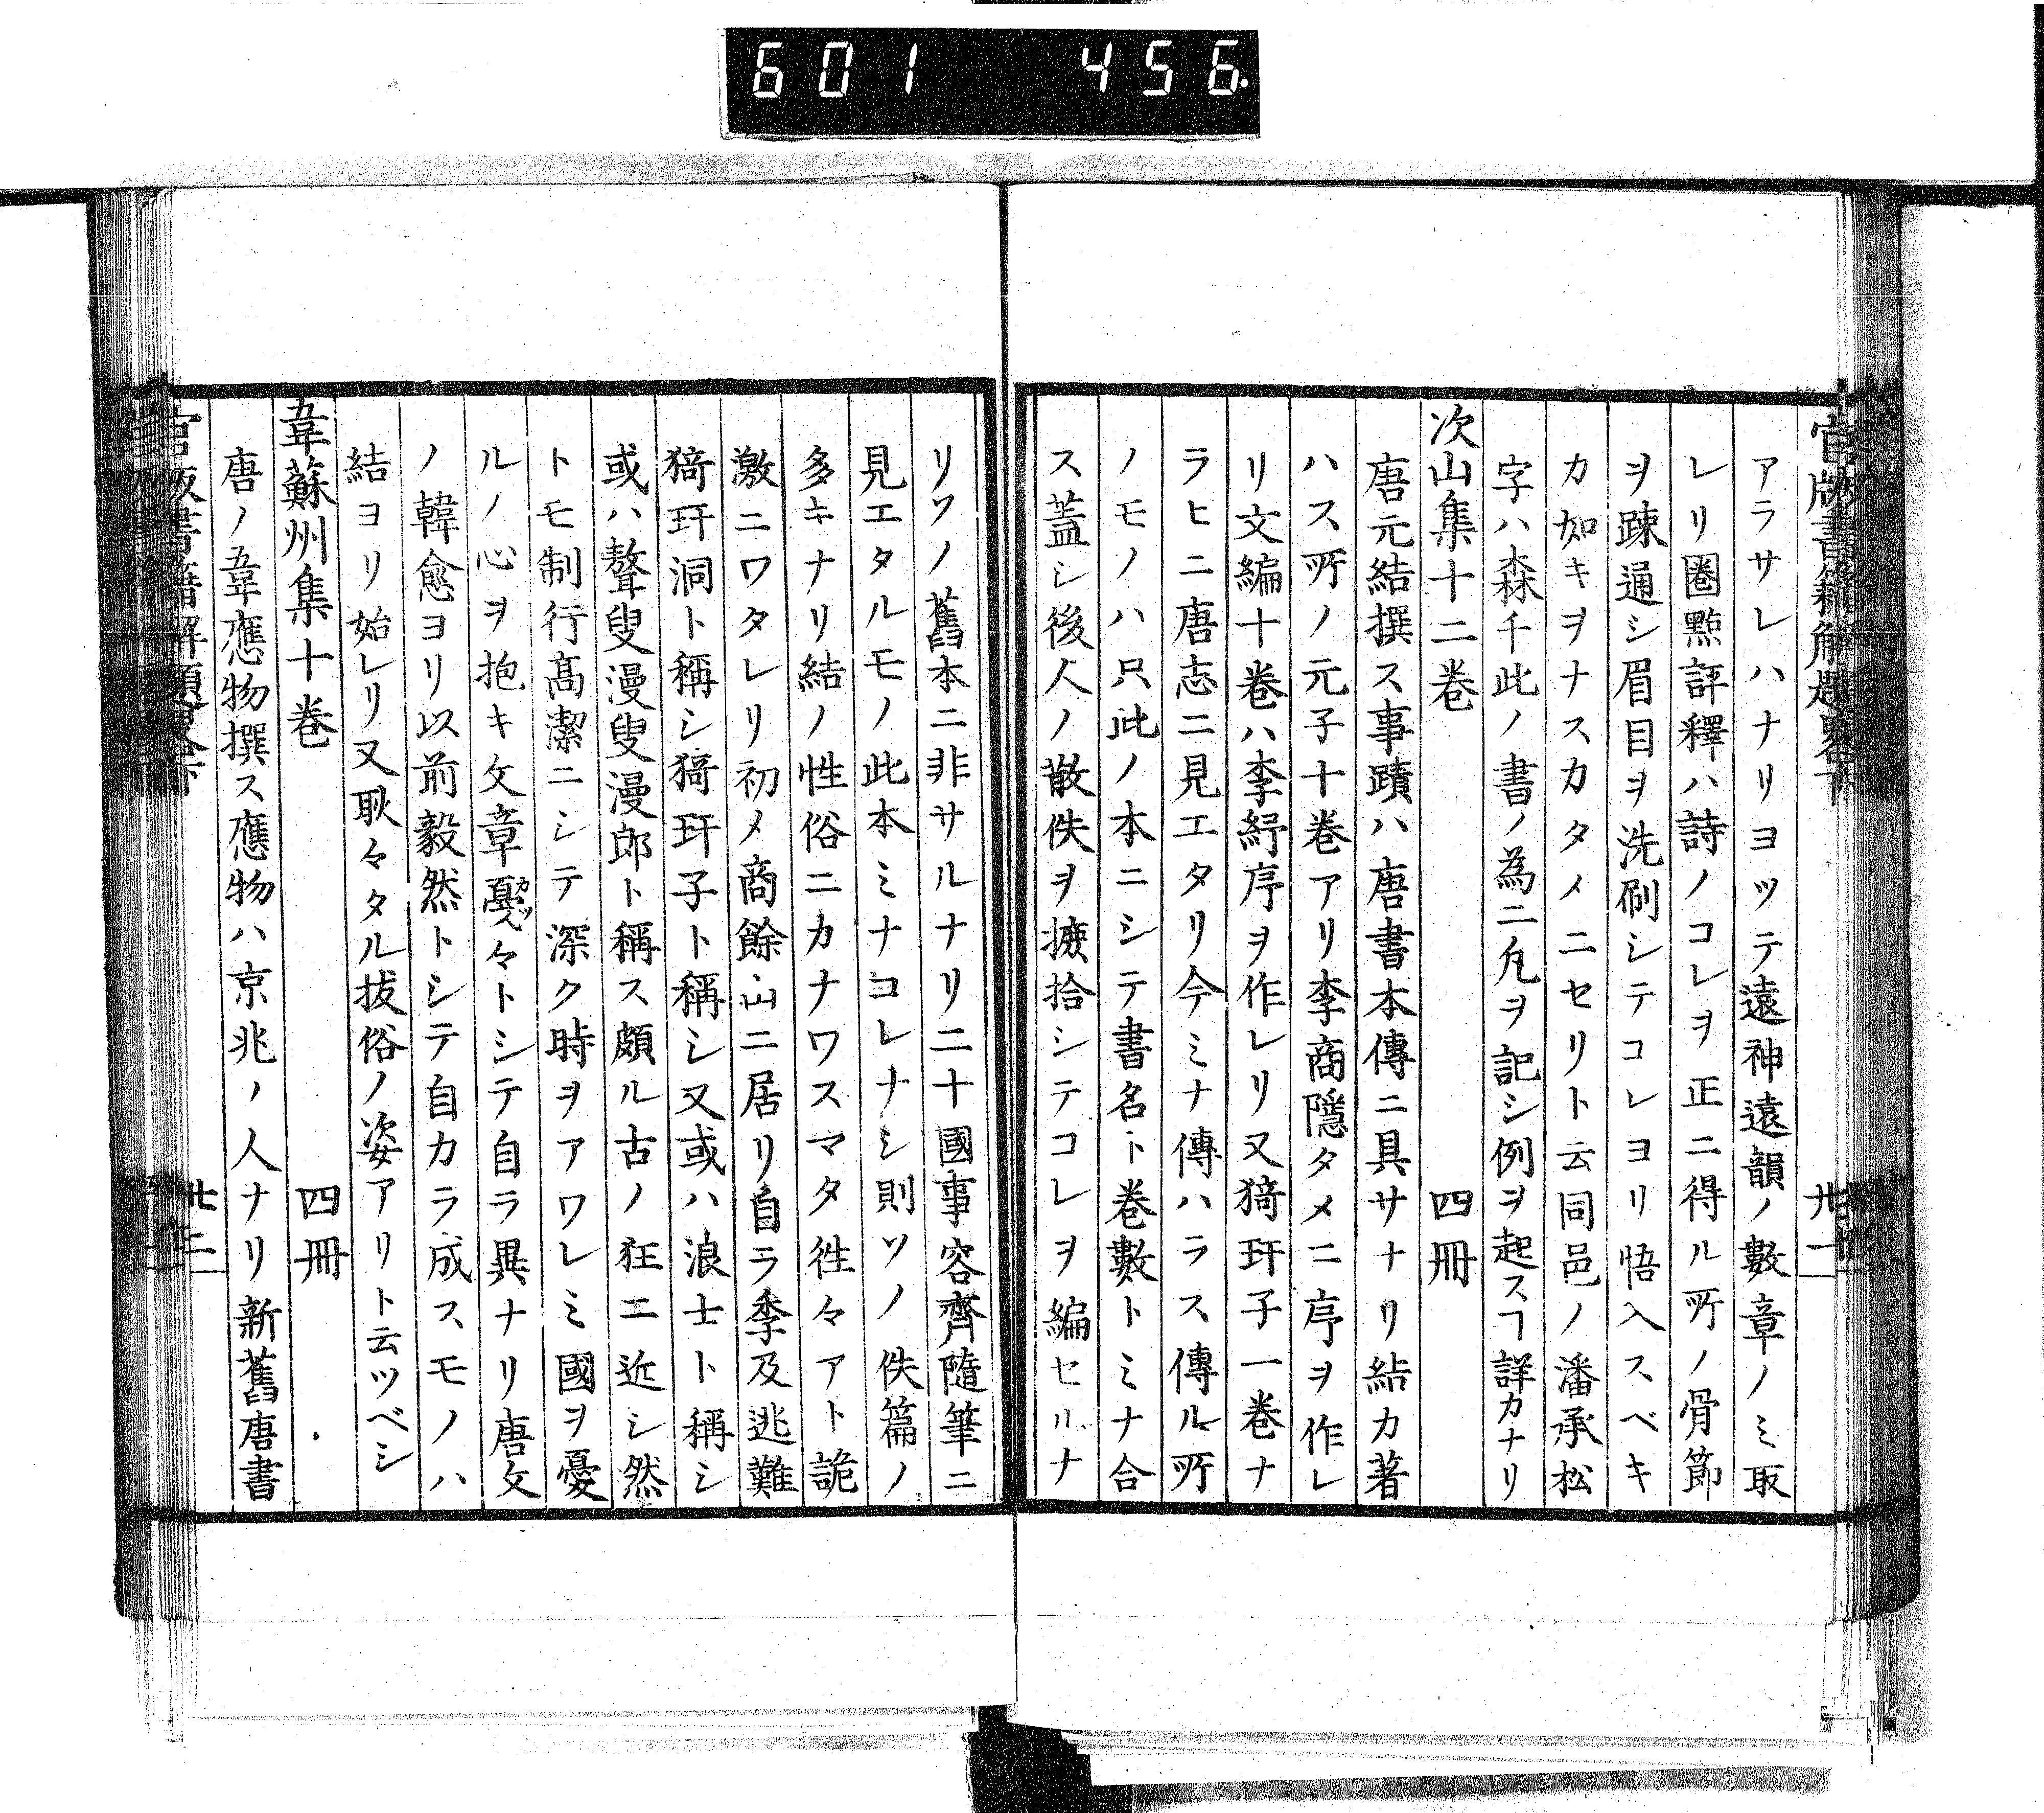 601 456.
官版書籍解題畧下
廿一
アラサレハナリヨツテ遠神遠韻ノ數章ノミ取
レリ圏㸃評釋ハ詩ノコレヲ正ニ得ル所ノ骨節
ヲ疎通シ眉目ヲ洗刷シテコレヨリ悟入スベキ
カ如キヲナスカタメニセリト云同邑ノ潘承松
字ハ森千此ノ書ノ為ニ凡ヲ記シ例ヲ起スヿ詳カナリ
次山集十二卷 四冊
唐元結撰ス事蹟ハ唐書本傳ニ具サナリ結カ著
ハス所ノ元子十卷アリ李商隱タメニ序ヲ作レ
リ文編十卷ハ李紓序ヲ作レリ又猗玕子一卷ナ
ラヒニ唐志ニ見エタリ今ミナ傳ハラス傳ル所
ノモノハ只此ノ本ニシテ書名ト卷數トミナ合
ス蓋シ後人ノ散佚ヲ摭拾シテコレヲ編セルナ
リソノ舊本ニ非サルナリ二十國事容齊隨筆ニ
見エタルモノ此本ミナコレナシ則ソノ佚篇ノ
多キナリ結ノ性俗ニカナワスマタ徃々アト詭
激ニワタレリ初メ商餘山ニ居リ自ラ季及逃難
猗玕洞ト稱シ猗玕子ト稱シ又或ハ浪士ト稱シ
或ハ聱叟漫叟漫郎ト稱ス頗ル古ノ狂エ近シ然
トモ制行髙潔ニシテ深ク時ヲアワレミ國ヲ憂
ルノ心ヲ抱キ文章戞々トシテ自ラ異ナリ唐文
ノ韓愈ヨリ以前毅然トシテ自カラ成スモノハ
結ヨリ始レリ又耿々タル拔俗ノ姿アリト云ツベシ
韋蘇州集十卷 四冊
唐ノ韋應物撰ス應物ハ京兆ノ人ナリ新舊唐書
官版書籍解題畧下
廿二